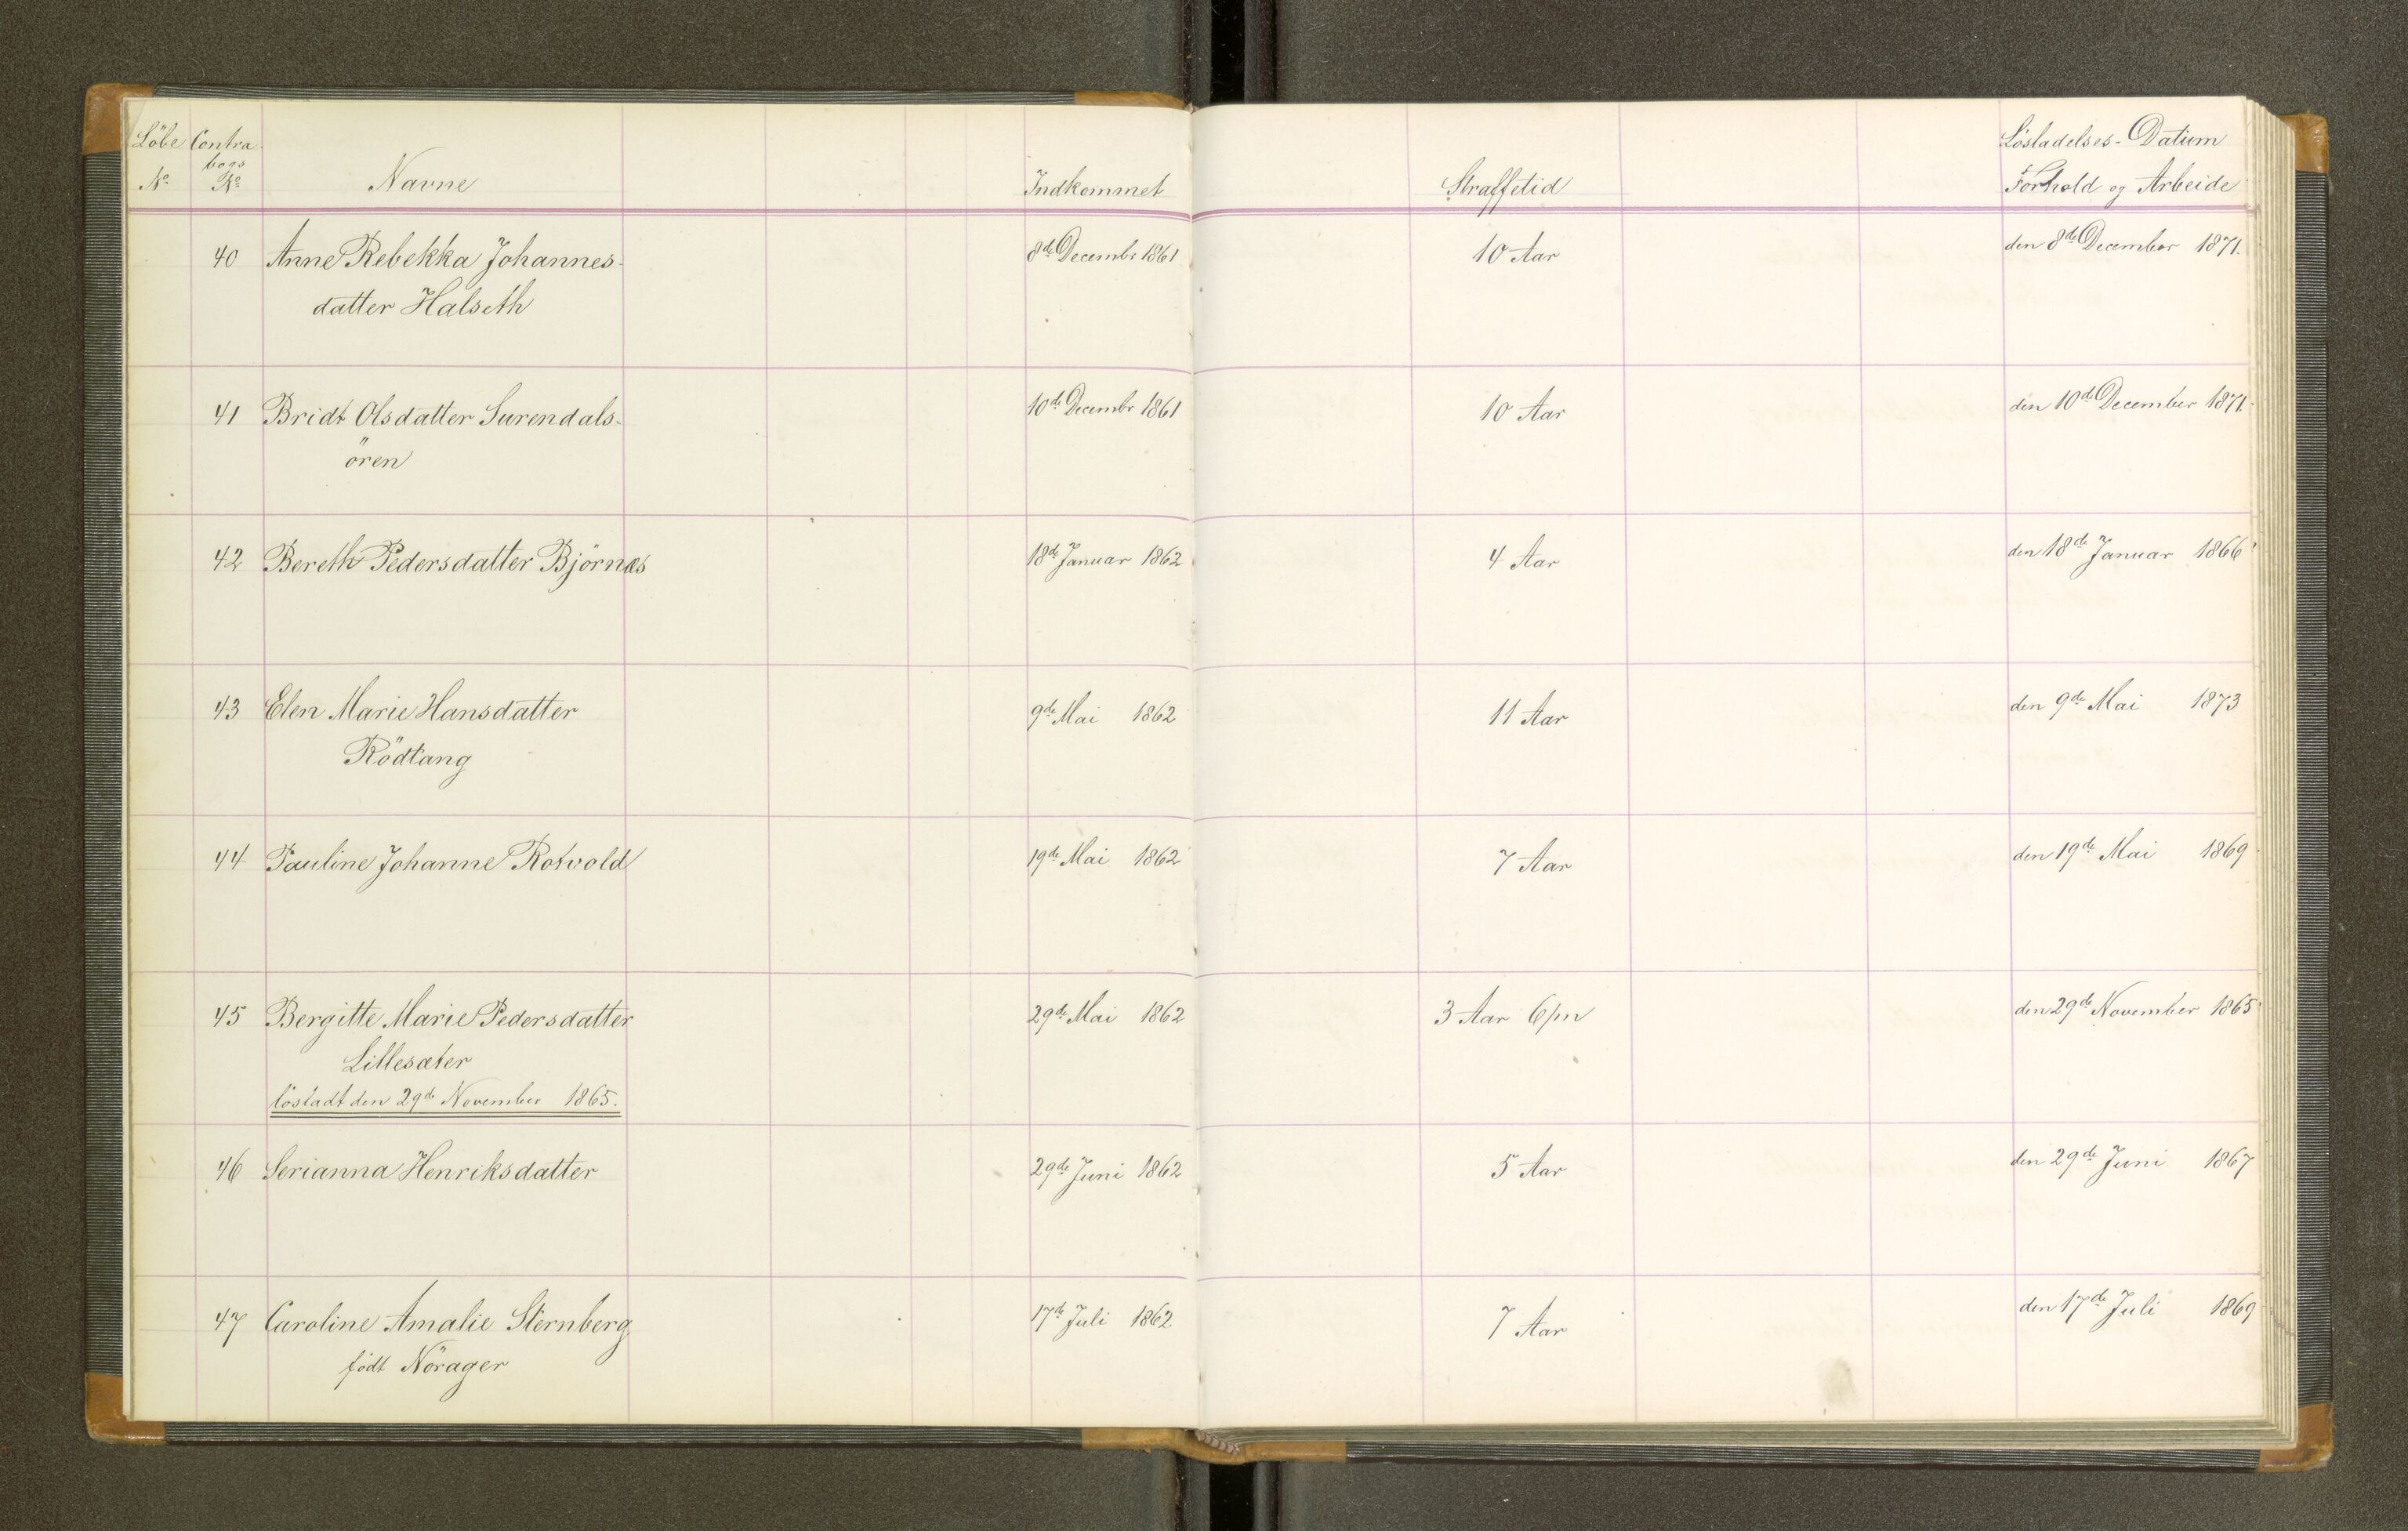 Löbe Contra Lösladelses-Datum
bogs
No No Navne Indkommet Straffetid Forhold og Arbeide
40 Anne Rebekka Johannes- 8de Decembr 1861 10 Aar den 8de December 1871.
datter Halseth
41 Bridt Olsdatter Surendals- 10de Decembr 1861 10 Aar den 10de December 1871.
ören
42 Bereth Pedersdatter Björnæs 18de Januar 1862 4 Aar den 18de Januar 1866
43 Elen Marie Hansdatter 9de Mai 1862 11 Aar den 9de Mai 1873
Rödtang
44 Pauline Johanne Rotvold 19de Mai 1862 7 Aar den 19de Mai 1869
45 Bergitte Marie Pedersdatter 29de Mai 1862 3 Aar 6/m den 29de November 1865
Lillesæter
lösladt den 29de November 1865.
46 Serianna Henriksdatter 29de Juni 1862 5 Aar den 29de Juni 1867
47 Caroline Amalie Sternberg 17de Juli 1862 7 Aar den 17de Juli 1869
födt Nörager